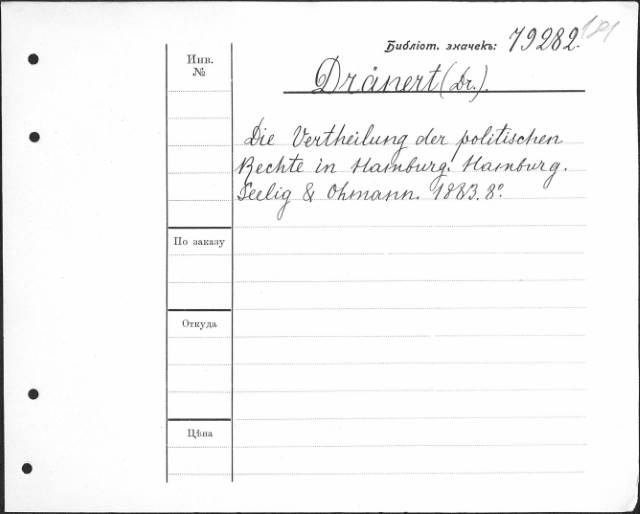 Библіот. значекъ: 79282.
Инв. №
Dränert (Dr.).
Die Vertheilung der politischen
Rechte in Hamburg. Hamburg.
Seelig & Ohmann. 1883. 8°.
По заказу
Откуда
Цѣна